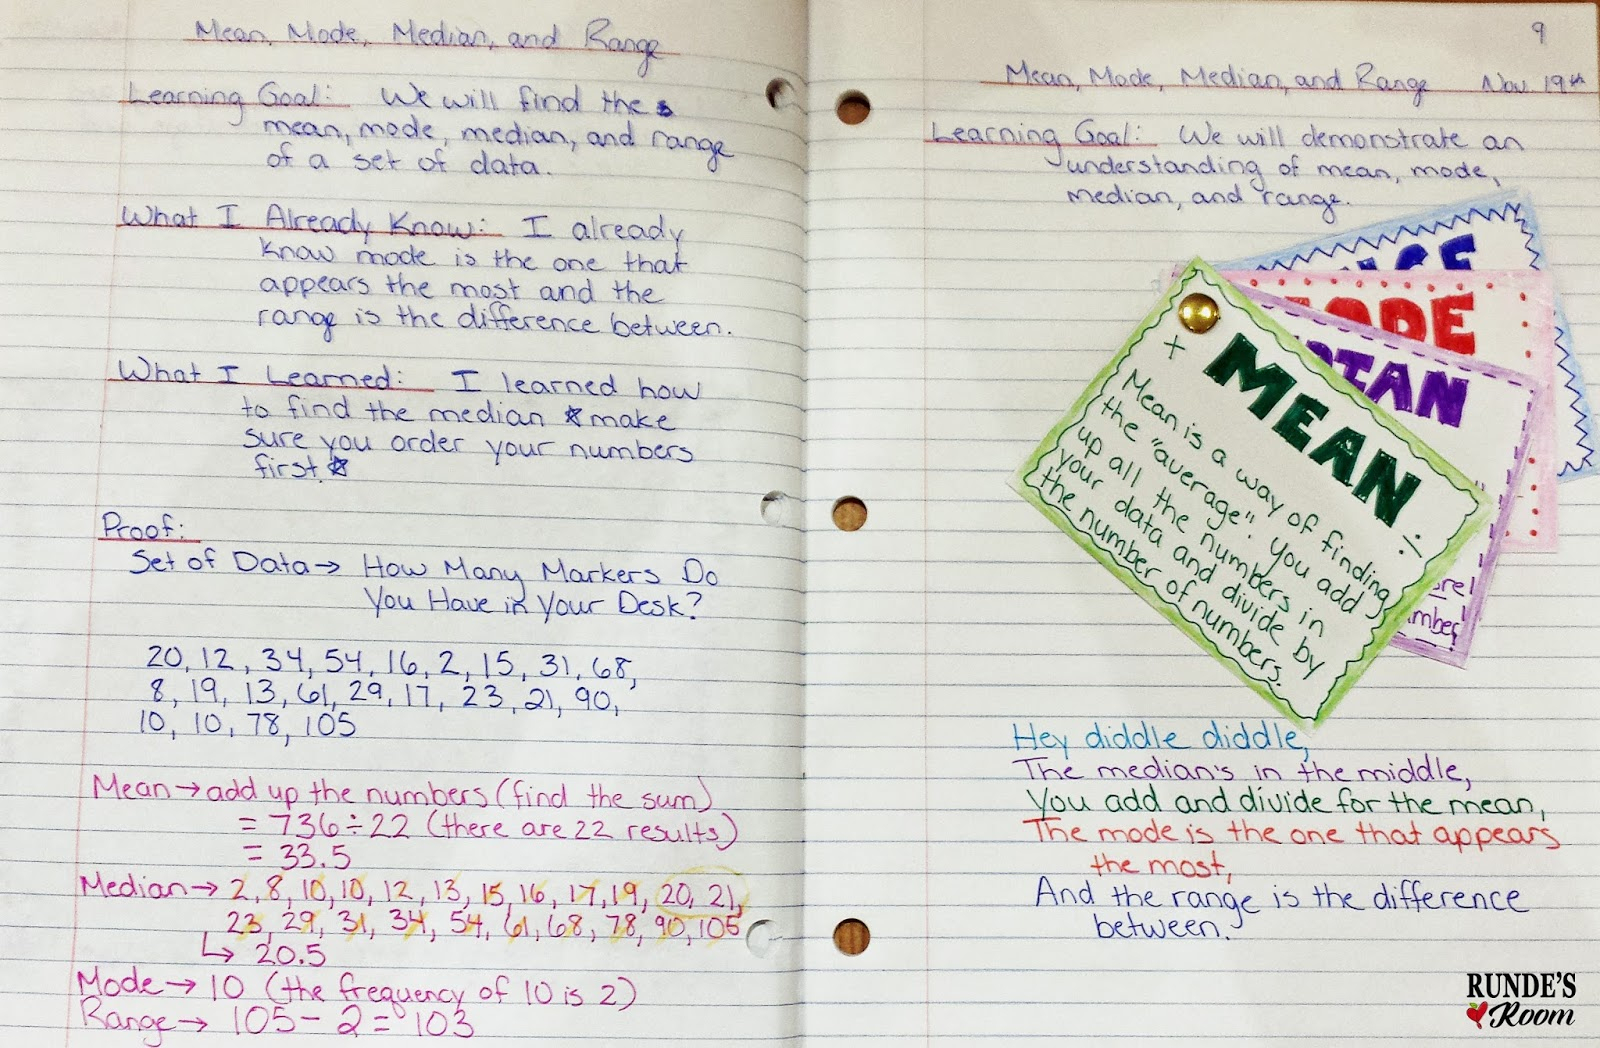 Mean, Mode, Median, and Range
Learning Goal: We will find the
mean, mode, median, and range
of a set of data.
What I Already Know: I already
know mode is the one that
appears the most and the
range is the difference between.
What I Learned: I learned how
to find the median ☆make
sure you order your numbers
first☆
Proof:
Set of Data→ How Many Markers Do
You Have in Your Desk?
20, 12, 34, 54, 16, 2, 15, 31, 68,
8, 19, 13, 61, 29, 17, 23, 21, 90,
10, 10, 78, 105
Mean→add up the numbers (find the sum)
= 736÷22 (there are 22 results)
= 33.5
Median→ 2, 8, 10, 10, 12, 13, 15, 16, 17, 19, 20, 21,
23, 29, 31, 34, 54, 61, 68, 78, 90, 105
↳ 20.5
Mode→ 10 (the frequency of 10 is 2)
Range→ 105 - 2 = 103
9
Mean, Mode, Median, and Range Nov. 19th
Learning Goal: We will demonstrate an
understanding of mean, mode,
median, and range.
+ MEAN ÷
Mean is a way of finding
the "average". You add
up all the numbers in
your data and divide by
the number of numbers.
Hey diddle diddle,
The median's in the middle,
You add and divide for the mean,
The mode is the one that appears
the most,
And the range is the difference
between.
RUNDE'S
Room